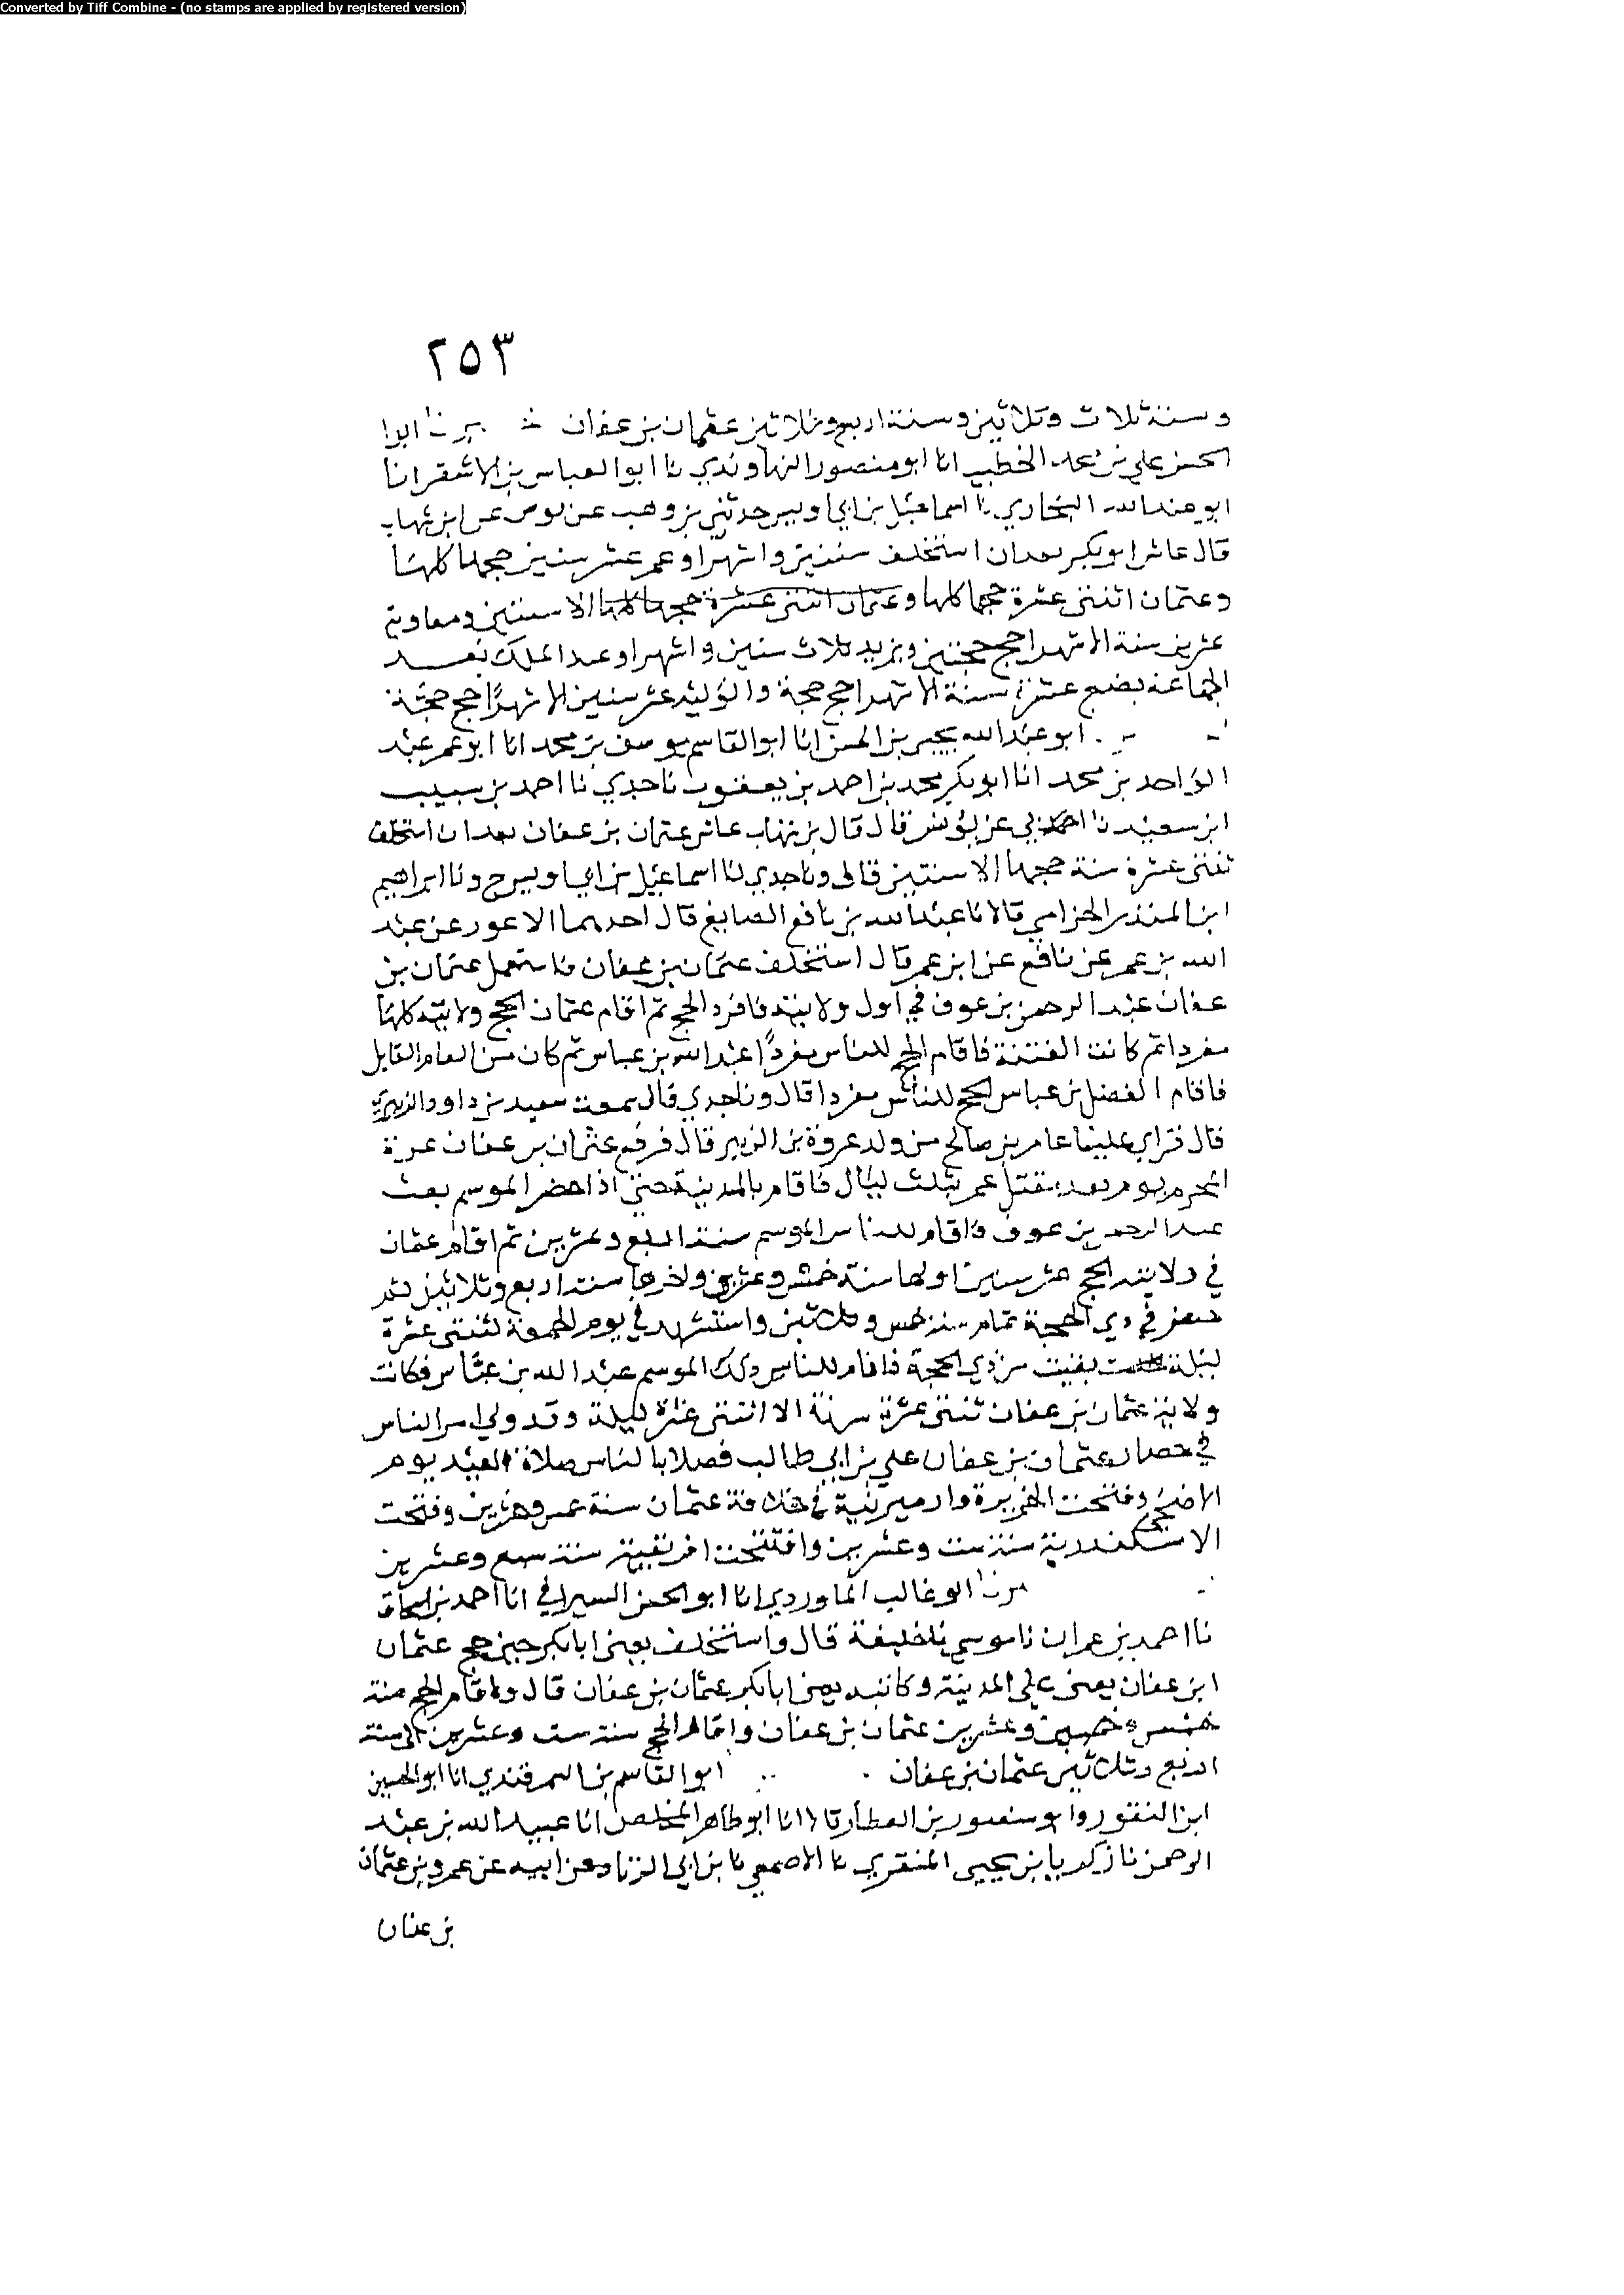 Converted by Tiff Combine - (no stamps are applied by registered version)
٢٥٣
وسنة ثلاث وثلاثين وسنة اربع وثلاثين عثمان بن عفان ابوا
الحسن علي بن محمد الخطيب انا ابو منصور النهاوندي نا ابو العباس بن الاشقر انا
ابو عبد الله البخاري نا اسماعيل بن ابي اويس حدثني بن وهب عن يونس عن ابن شهاب
قال عاش ابو بكر بعدان استخلف سنتين واشهرا وعمر عشر سنين حجها كلها
وعثمان اثنتي عشرة حجها كلها وعثمان اثنتي عشرة حجها كلها الا سنتين ومعاوية
عشرين سنة الا شهرا حج حجتين ويزيد ثلاث سنين واشهرا وعبد الملك بعد
الجماعة بضع عشرة سنة الا شهرا حج حجة والوليد عشر سنين الا شهرا حج حجة
ابو عبد الله يحيى بن الحسن انا ابو القاسم يوسف بن محمد انا ابو عمر عبد
الواحد بن محمد انا ابو بكر محمد بن احمد بن يعقوب نا جدي نا احمد بن شبيب
ابن سعيد نا ابي عن يونس قال قال بن شهاب عاش عثمان بن عفان بعدان استخلف
ثنتي عشرة سنة حجها الا سنتين قال ونا جدي نا اسماعيل بن ابي اويس ح ونا ابراهيم
ابن المنذر الحزامي قالا نا عبد الله بن نافع الصايغ قال احدهما الاعور عن عبد
الله بن عمر عن نافع عن ابن عمر قال استخلف عثمان بن عفان فاستعمل عثمان بن
عفان عبد الرحمن بن عوف في اول ولايته فافرد الحج ثم اقام عثمان الحج ولايته كلها
مفردا ثم كانت الفتنة فاقام الحج للناس مفردا عبد الله بن عباس ثم كان من العام القابل
فاقام الفضل بن عباس الحج للناس مفردا قال ونا جدي قال سمعت سعيد بن داود الزبيري
قال قراي علينا عامر بن صالح من ولد عروة بن الزبير قال فرفع عثمان بن عفان غرة
المحرم يوم بعد مقتل عمر بثلث ليال فاقام بالمدينة حتى اذا حضر الموسم بعث
عبد الرحمن بن عوف فاقام للناس الموسم سنة اربع وعشرين ثم اقام عثمان
في ولايته الحج عشر سنين اولها سنة خمس وعشرين واخرها سنة اربع وثلاثين ثم
حصر في ذي الحجة تمام سنة خمس وثلاثين واستشهد في يوم الجمعة لثنتي عشرة
ليلة بقيت من ذي الحجة فاقام للناس ذلك الموسم عبد الله بن عباس فكانت
ولاية عثمان بن عفان ثنتي عشرة سنة الا اثنتي عشرة ليلة وقد ولي امر الناس
في حصار عثمان بن عفان علي بن ابي طالب فصلا بالناس صلاة العيد يوم
الاضحى وفتحت الجزيرة وارمينية في خلافة عثمان سنة وعشرين وفتحت
الاسكندرية سنة ست وعشرين وافتتحت افريقية سنة سبع وعشرين
ابو غالب الماوردي انا ابو الحسن السيرافي انا احمد بن اسحاق
نا احمد بن عمران نا موسى نا خليفة قال واستخلف يعني ابا بكر حين حج عثمان
ابن عفان يعني على المدينة وكاتبه يعني ابا بكر عثمان بن عفان قال واقام الحج سنة
خمس وعشرين عثمان بن عفان واقام الحج سنة ست وعشرين الى سنة
اربع وثلاثين عثمان بن عفان ابو القاسم بن السمرقندي انا ابو الحسين
ابن النقور وابو منصور بن العطار قالا انا ابو طاهر المخلص انا عبيد الله بن عبد
الرحمن نا زكريا بن يحيى المنقري نا الاصمعي نا بن ابي الزناد عن ابيه عن عمرو بن عثمان
بن عفان